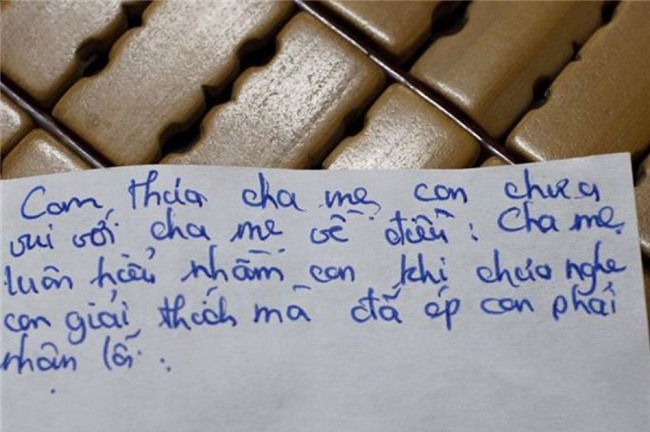 Con thưa cha mẹ, con chưa
vui với cha mẹ về điều: Cha mẹ
luôn hiểu nhầm con khi chưa nghe
con giải thích mà đã ép con phải
nhận lỗi.